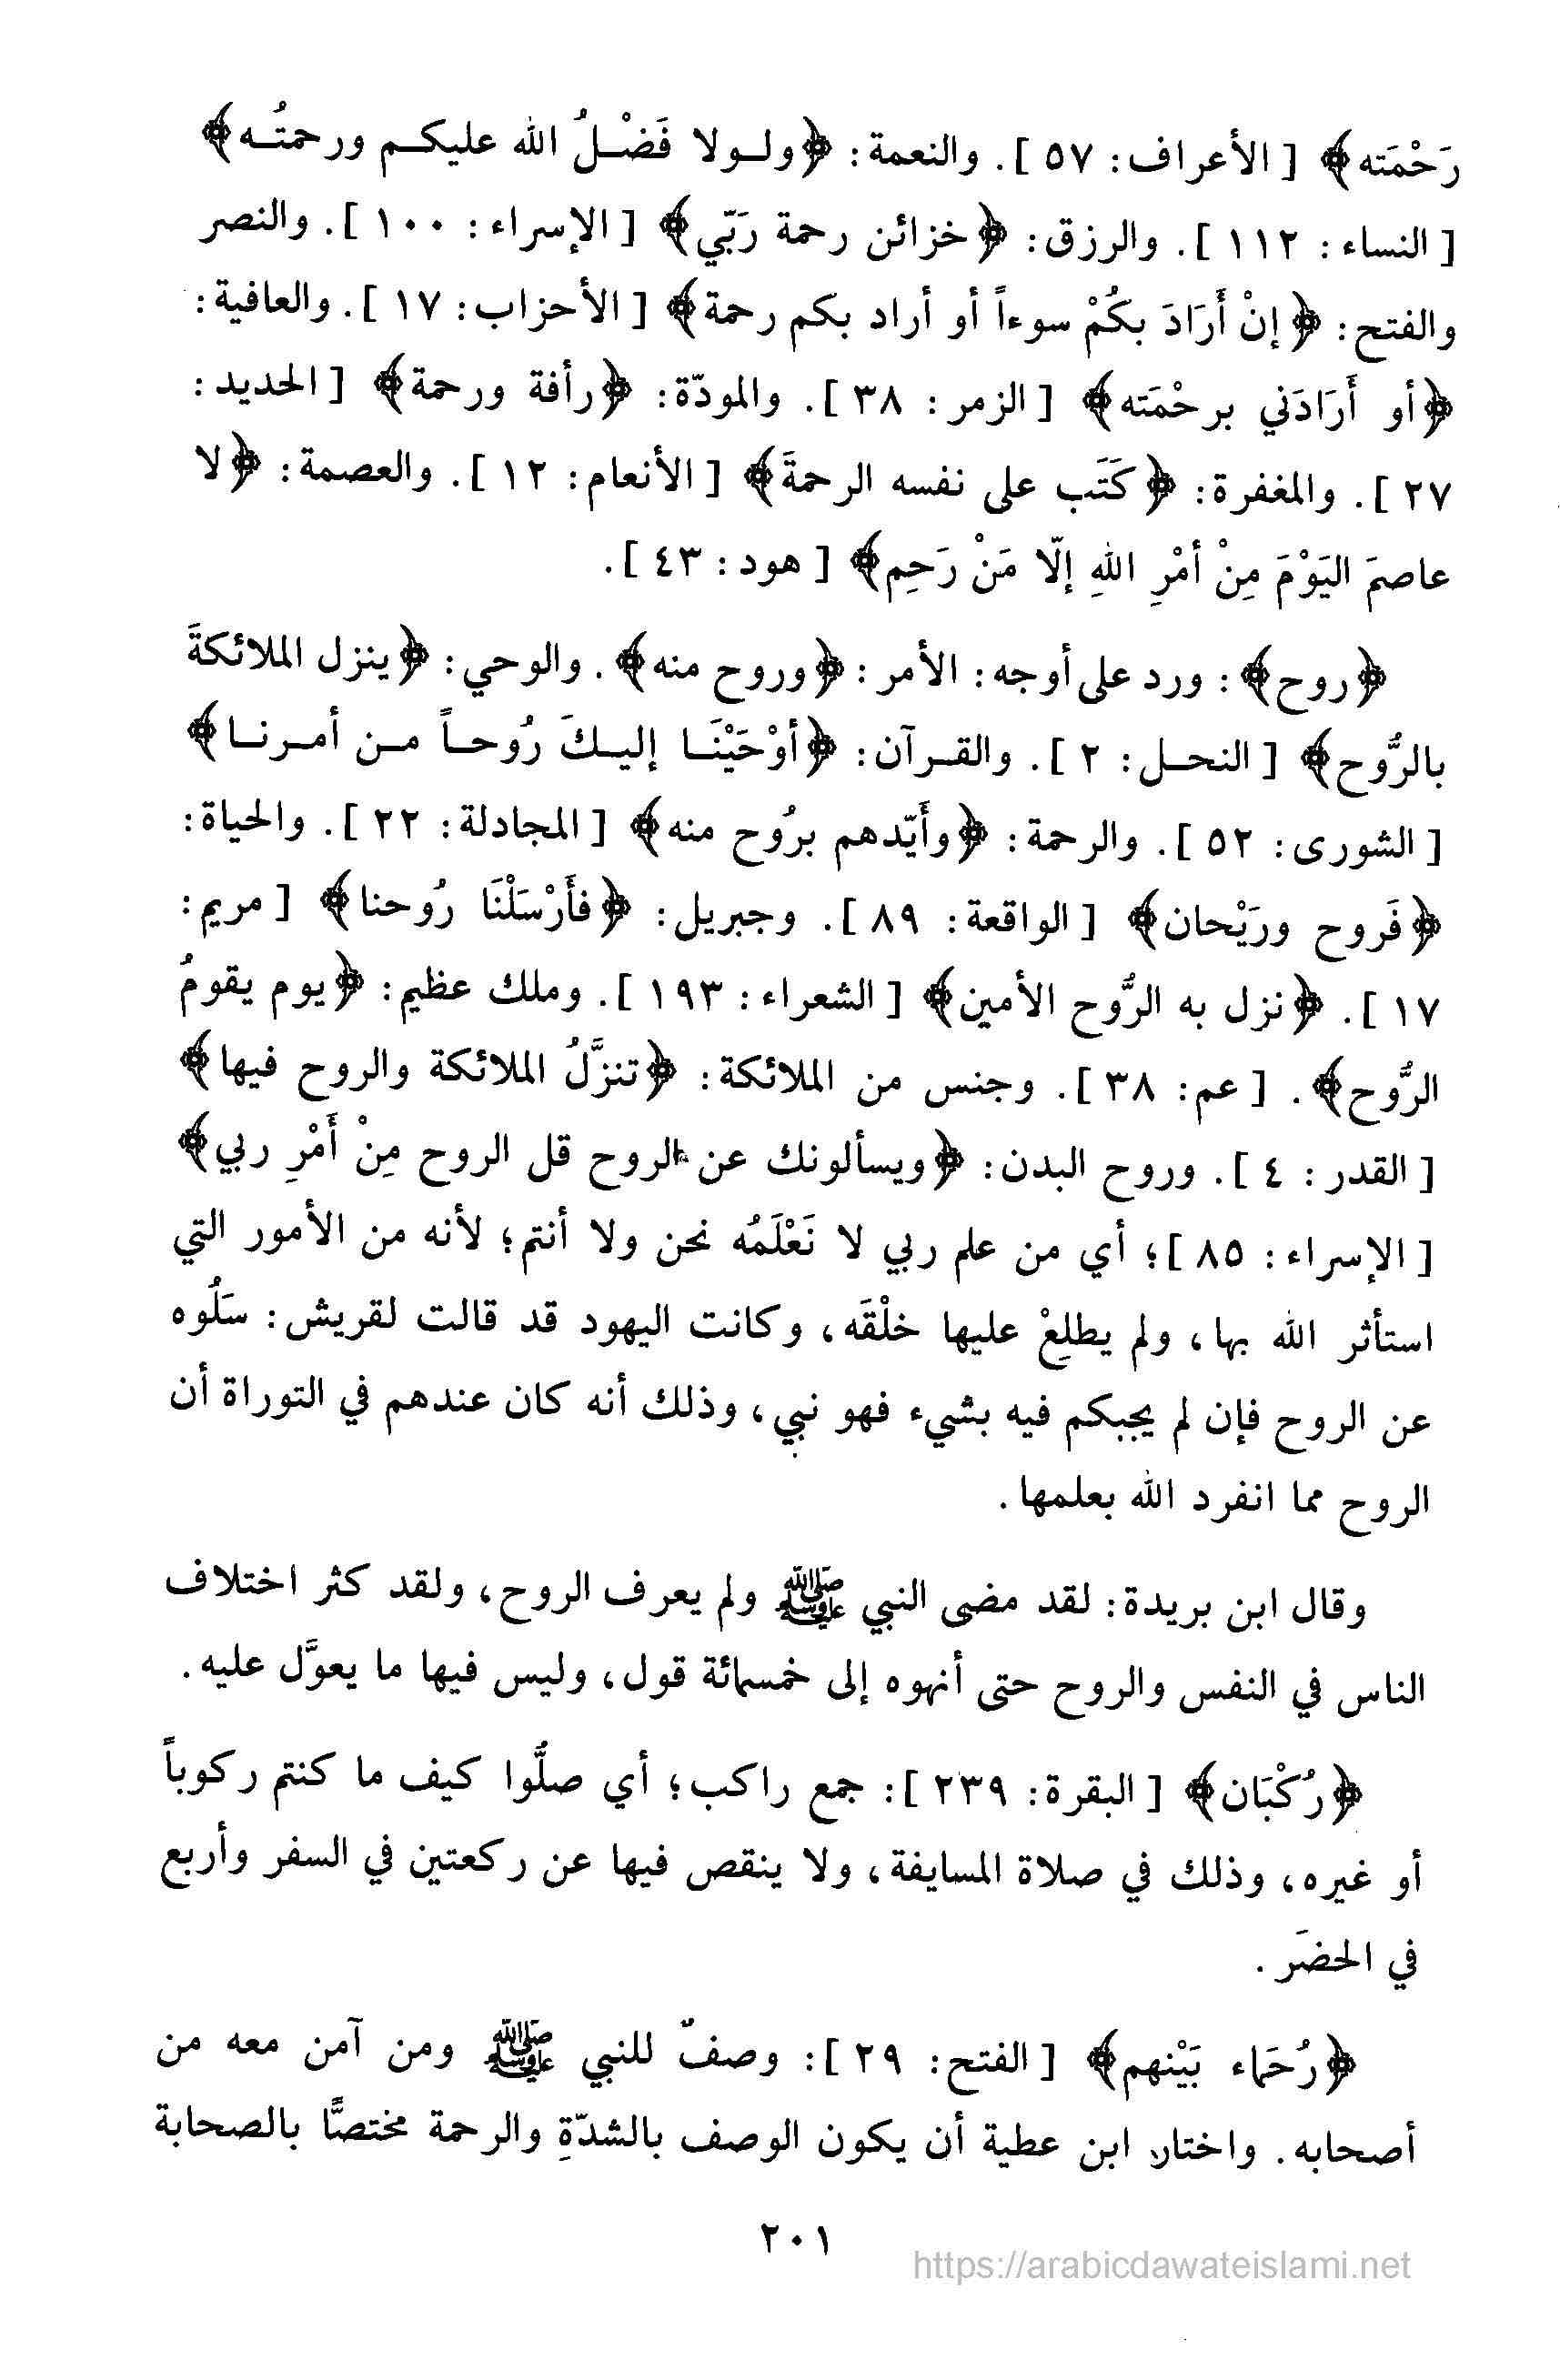 رَحْمَته﴾ [ الأعراف: ٥٧ ]. والنعمة: ﴿ولـولا فَضْـلُ الله عليكـم ورحمتُـه﴾
[ النساء: ١١٢ ]. والرزق: ﴿خزائن رحمة رَبّي﴾ [ الإسراء: ١٠٠ ]. والنصر
والفتح: ﴿إنْ أَرَادَ بكُمْ سوءاً أو أراد بكم رحمة﴾ [ الأحزاب: ١٧ ]. والعافية:
﴿أو أَرَادَني برحْمَته﴾ [ الزمر: ٣٨ ]. والمودّة: ﴿رأفة ورحمة﴾ [ الحديد:
٢٧ ]. والمغفرة: ﴿كَتَب على نفسه الرحمةَ﴾ [ الأنعام: ١٢ ]. والعصمة: ﴿لا
عاصمَ اليَوْمَ مِنْ أمْرِ اللهِ إلّا مَنْ رَحِم﴾ [ هود: ٤٣ ].
﴿روح﴾: ورد على أوجه: الأمر: ﴿وروح منه﴾. والوحي: ﴿ينزل الملائكةَ
بالرُّوح﴾ [ النحـل: ٢ ]. والقـرآن: ﴿أوْحَيْنَـا إليـكَ رُوحـاً مـن أمـرنـا﴾
[ الشورى: ٥٢ ]. والرحمة: ﴿وأَيّدهم برُوح منه﴾ [ المجادلة: ٢٢ ]. والحياة:
﴿فَروح ورَيْحان﴾ [ الواقعة: ٨٩ ]. وجبريل: ﴿فأَرْسَلْنَا رُوحنا﴾ [ مريم:
١٧ ]. ﴿نزل به الرُّوح الأمين﴾ [ الشعراء: ١٩٣ ]. وملك عظيم: ﴿يوم يقومُ
الرُّوح﴾. [ عم: ٣٨ ]. وجنس من الملائكة: ﴿تنزَّلُ الملائكة والروح فيها﴾
[ القدر: ٤ ]. وروح البدن: ﴿ويسألونك عن الروح قل الروح مِنْ أَمْرِ ربي﴾
[ الإسراء: ٨٥ ]؛ أي من علم ربي لا نَعْلَمُه نحن ولا أنتم؛ لأنه من الأمور التي
استأثر الله بها، ولم يطلِعْ عليها خلْقَه، وكانت اليهود قد قالت لقريش: سَلُوه
عن الروح فإن لم يجبكم فيه بشيء فهو نبي، وذلك أنه كان عندهم في التوراة أن
الروح مما انفرد الله بعلمها.
وقال ابن بريدة: لقد مضى النبي ﷺ ولم يعرف الروح، ولقد كثر اختلاف
الناس في النفس والروح حتى أنهوه إلى خمسمائة قول، وليس فيها ما يعوَّل عليه.
﴿رُكْبَان﴾ [ البقرة: ٢٣٩ ]: جمع راكب؛ أي صلُّوا كيف ما كنتم ركوباً
أو غيره، وذلك في صلاة المسايفة، ولا ينقص فيها عن ركعتين في السفر وأربع
في الحضَر.
﴿رُحَماء بَيْنهم﴾ [ الفتح: ٢٩ ]: وصفٌ للنبي ﷺ ومن آمن معه من
أصحابه. واختار ابن عطية أن يكون الوصف بالشدّةِ والرحمة مختصًّا بالصحابة
٢٠١
https://arabicdawateislami.net